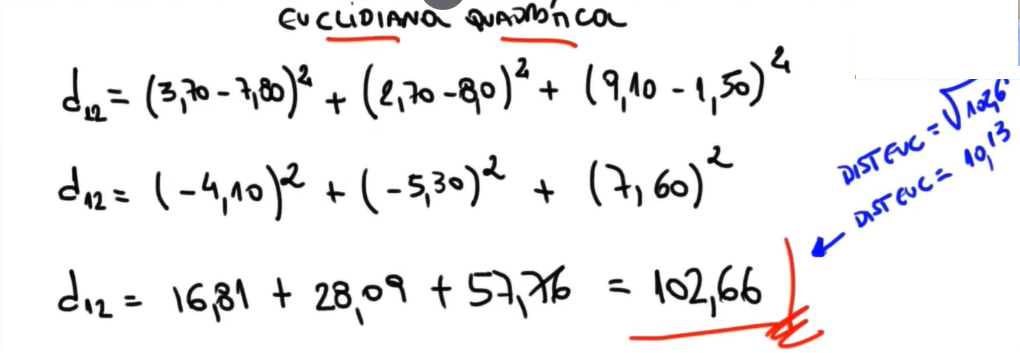 EUCLIDIANA QUADRÁTICA
d₁₂ = (3,70 - 7,80)² + (2,70 - 8,0)² + (9,10 - 1,50)²
d₁₂ = (-4,10)² + (-5,30)² + (7,60)²
d₁₂ = 16,81 + 28,09 + 57,76 = 102,66
DIST EUC = √102,6
DIST EUC = 10,13